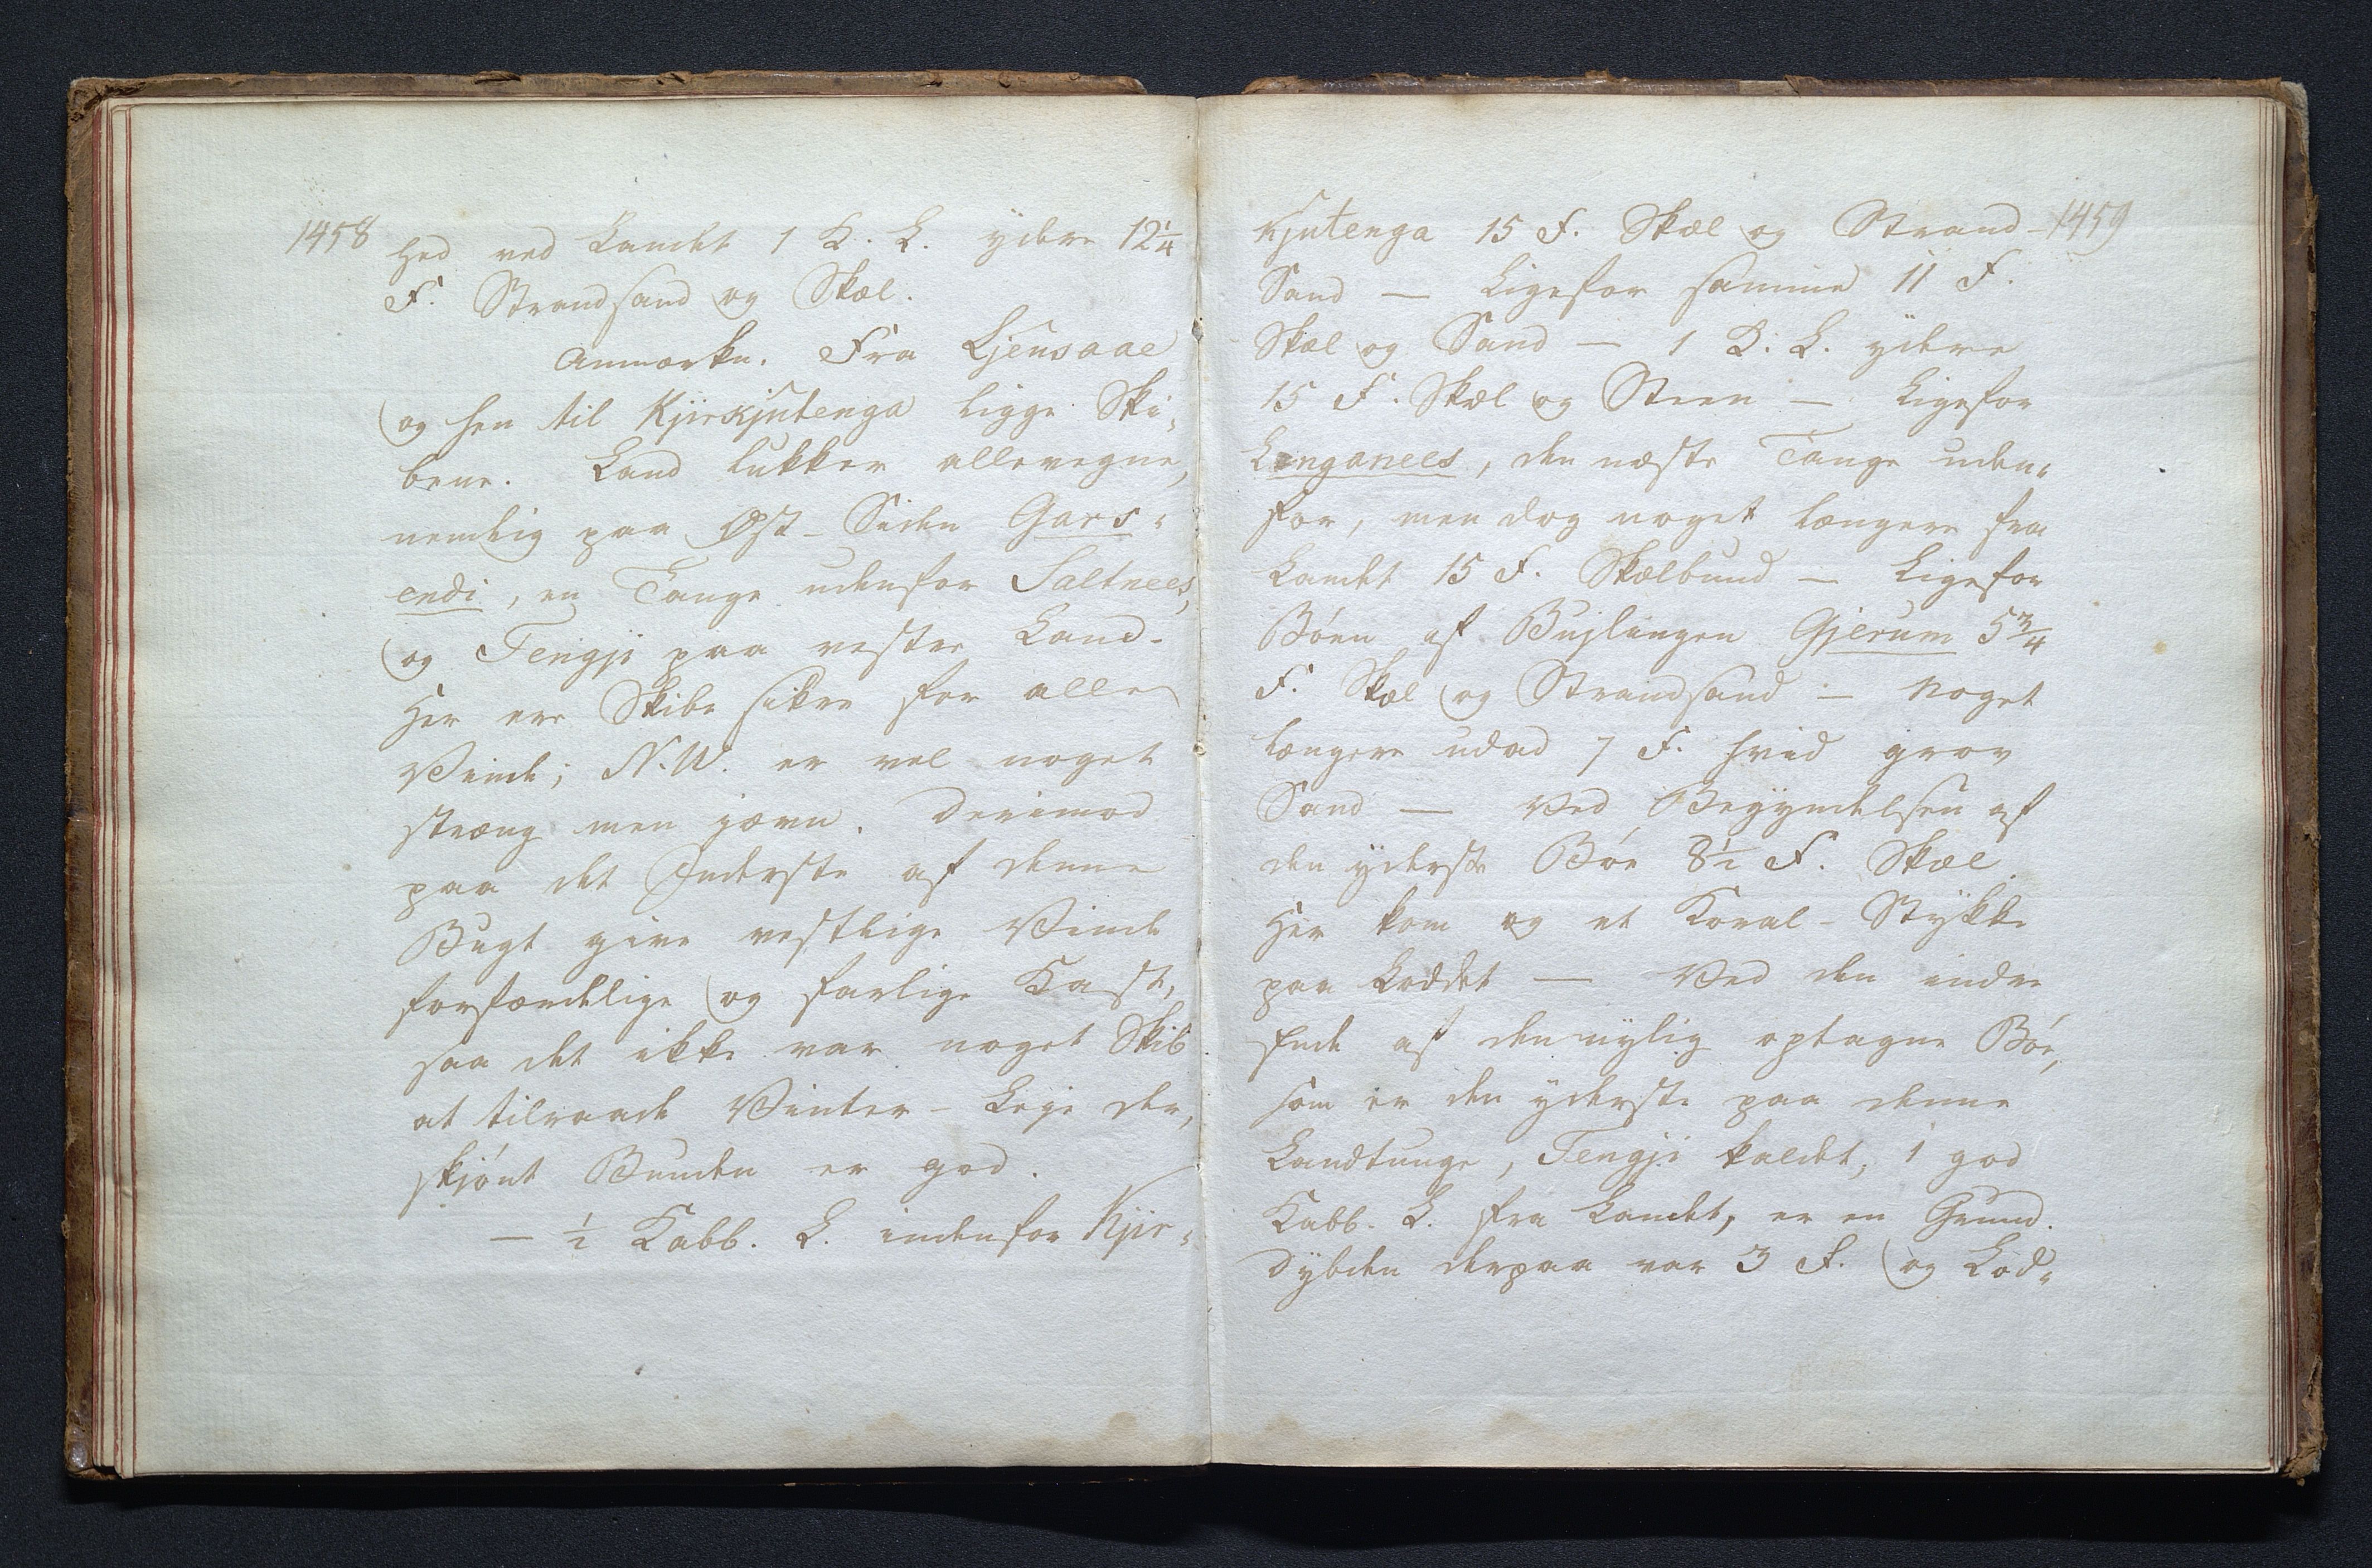 1458
hed ved Landet 1 K. L. ydere 12 1/4
F. Strandsand og Skæl.
Anmærkn. Fra Ljensaae
og hen til Kjirkjutenga ligge Ski-
bene. Land lukker allevegne,
nemlig paa Øst-Siden Gars-
endi, en Tange udenfor Saltnees,
og Tengji paa vestre Land-
Her ere Skibe sikre for alle
Vinde; N.W. er vel noget
stræng men jævn. Derimod
paa det Inderste af denne
Bugt give vestlige Vinde
forfærdelige og farlige Kast,
saa det ikke var noget Skib
at tilraade Vinter-Leje der,
skjønt Bunden er god.
— 1/2 Kabb. L. indenfor Kjir-
1459
kjutenga 15 F. Skæl og Strand-
Sand — Ligefor samme 11 F.
Skæl og Sand — 1 K. L. ydere
15 F. Skæl og Steen — Ligefor
Langanees, den næste Tange uden-
for, men dog noget længere fra
Landet 15 F. Skælbund — Ligefor
Böen af Bujlingen Gjerum 5 3/4
F. Skæl og Strandsand — Noget
længere udad 7 F. hvid grov
Sand — Ved Begyndelsen af
den yderste Böe 8 1/2 F. Skæl.
Her kom og et Koral-Stykke
paa Loddet — Ved den indre
Ende af den nylig optagne Böe,
som er den yderste paa denne
Landtunge, Tengji kaldet, 1 god
Kabb. L. fra Landet, er en Grund.
Dybden derpaa var 3 F. og Lod-